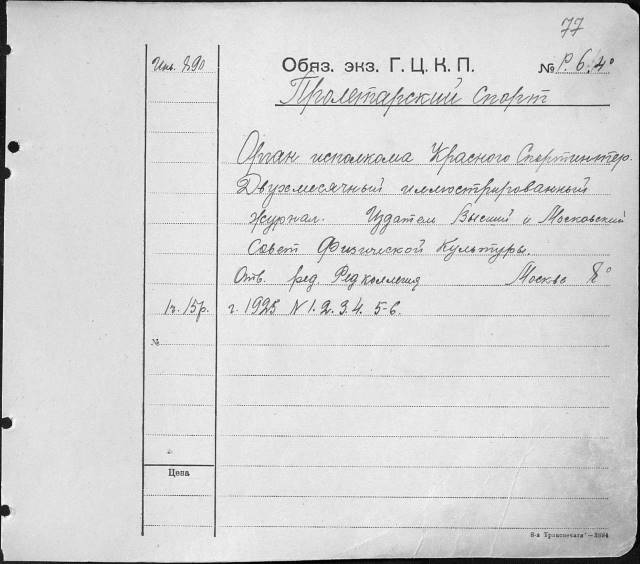 77
Инв. 890
Обяз. экз. Г. Ц. К. П. № Р. 6.4°
Пролетарский спорт
Орган исполкома Красного Спортинтер.
Двухмесячный иллюстрированный
журнал. Издатели Высший и Московский
Совет Физической Культуры.
Отв. ред. Редколлегия Москва 8°
1г. 15р. г. 1925 N 1. 2. 3. 4. 5-6.
№
Цена